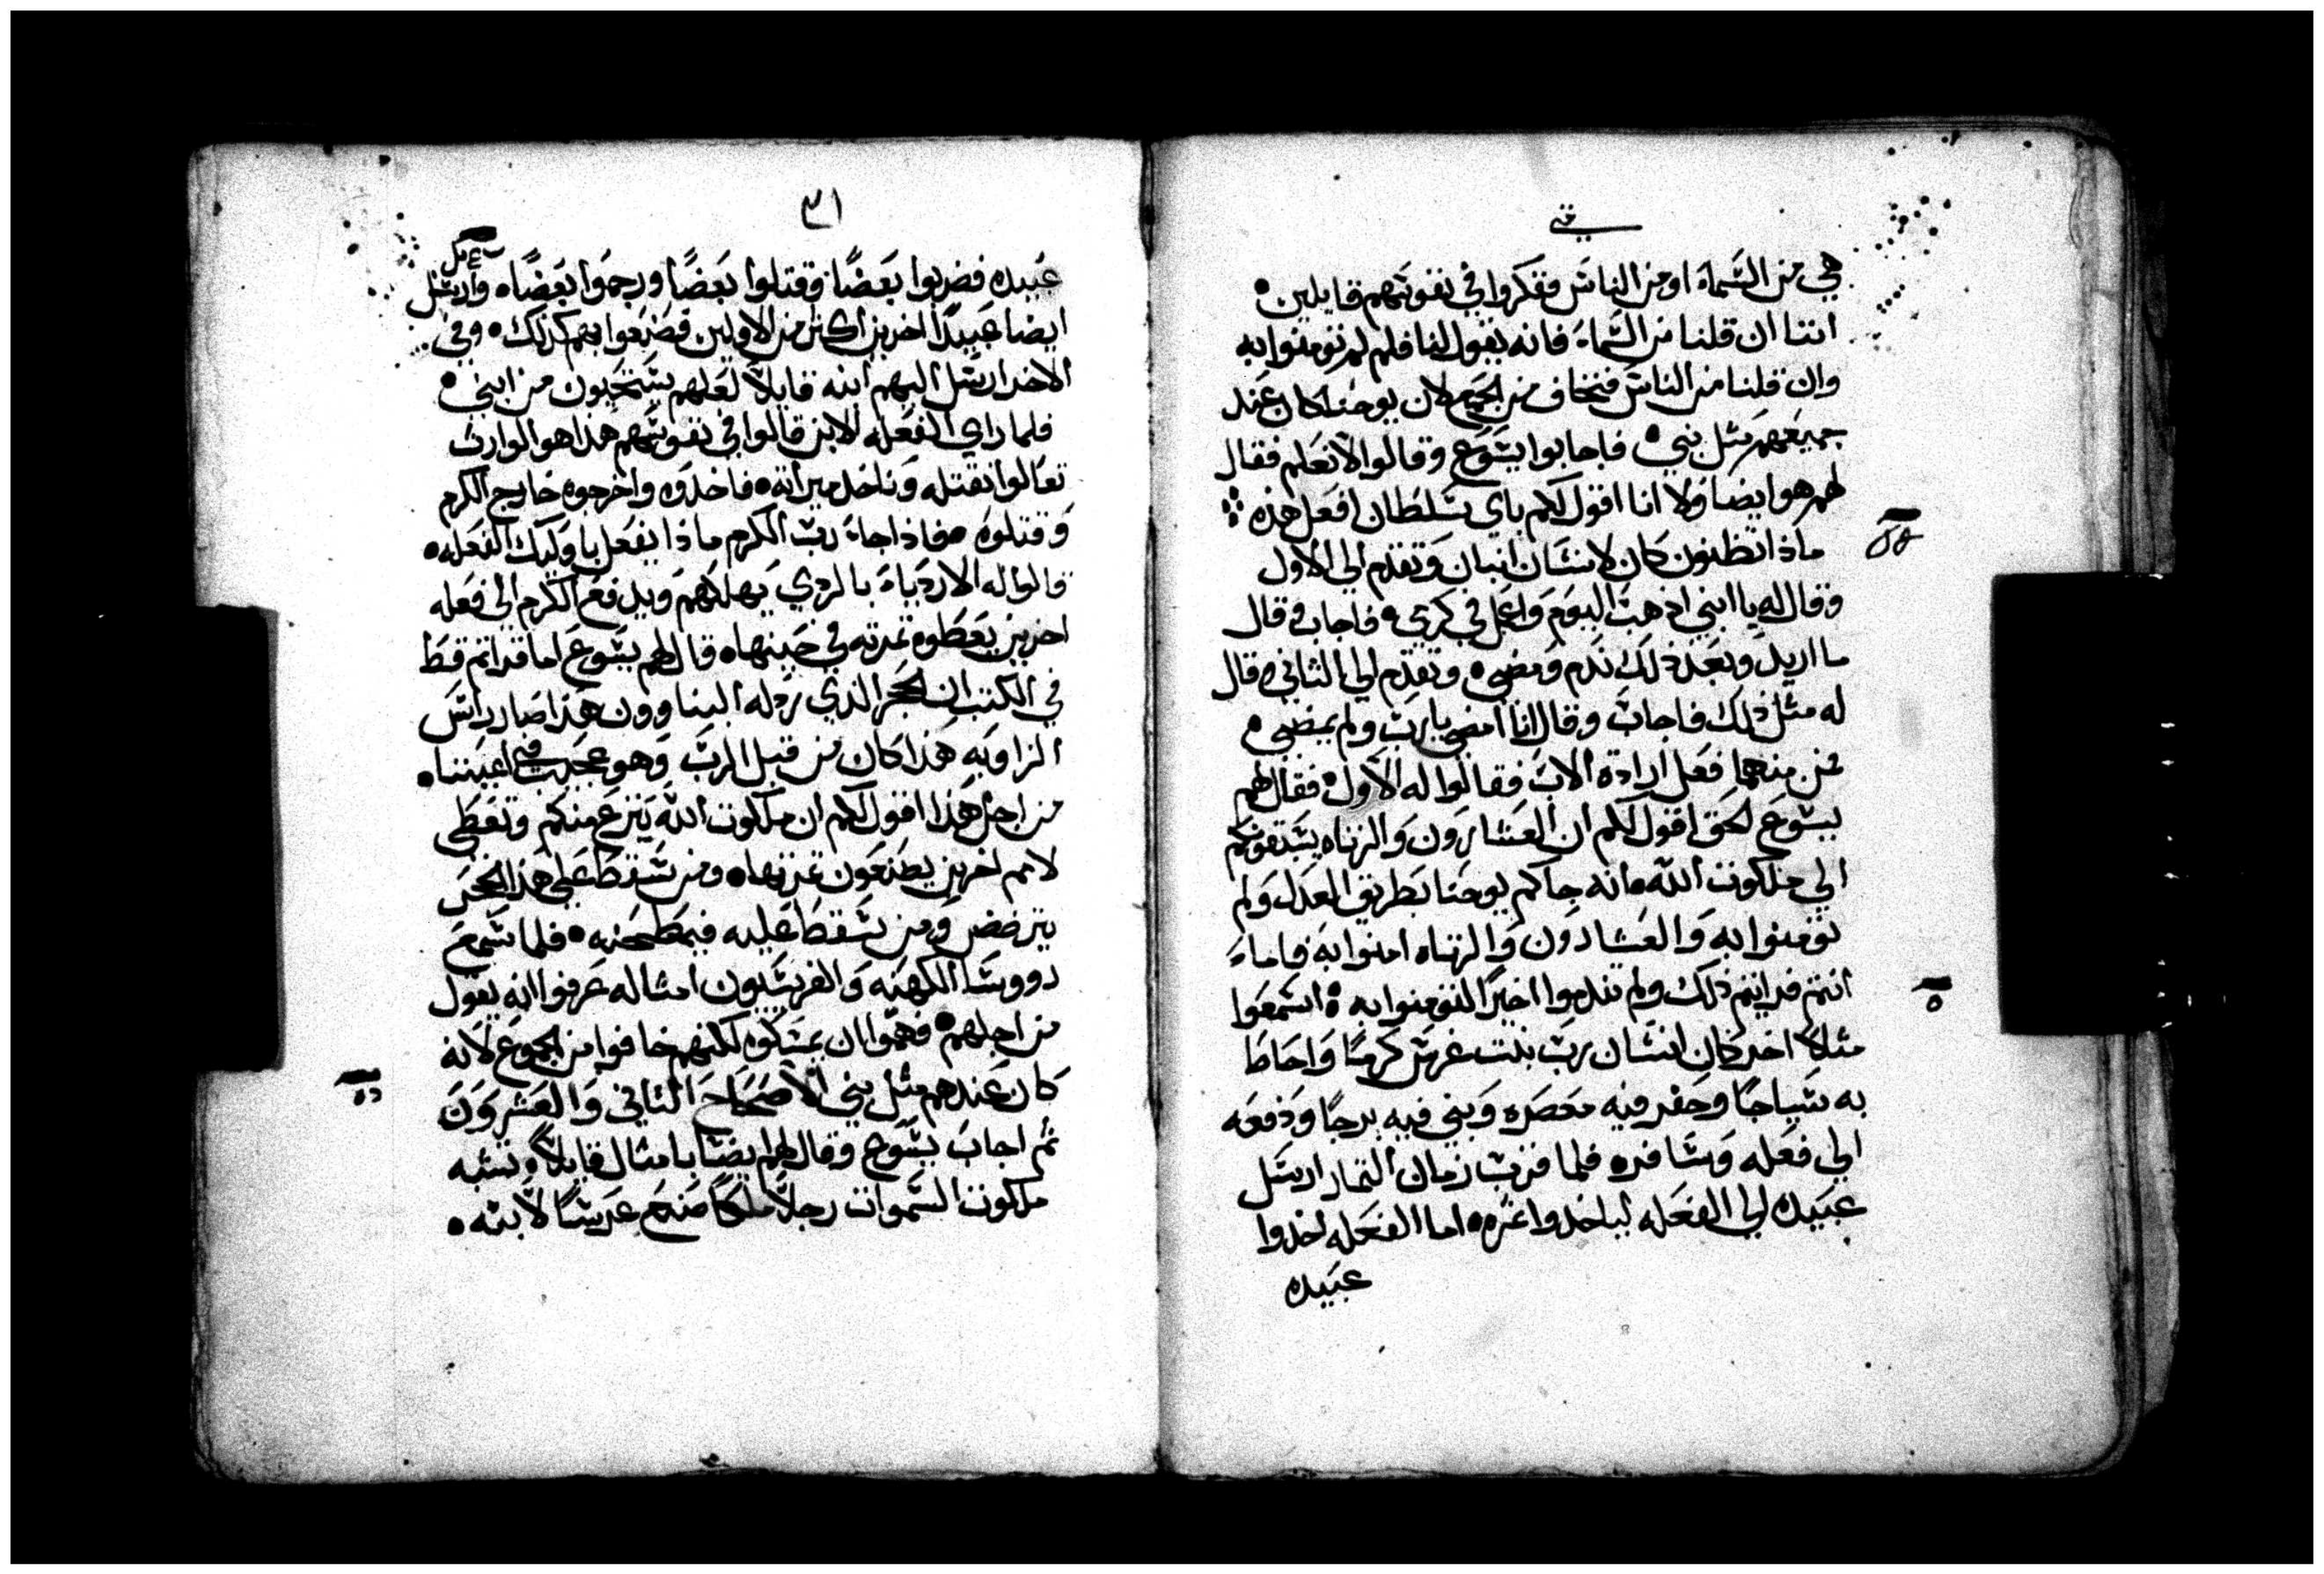 هي من السماء او من الناس ففكروا في نفوسهم قايلين
اننا ان قلنا من السماء فانه يقول لنا فلم لم تومنوا به
وان قلنا من الناس فنخاف من الجمع لان يوحنا كان عند
جميعهم مثل نبي فاجابوا يسوع وقالوا لا نعلم فقال
لهم هو ايضا ولا انا اقول لكم باي سلطان افعل هذه
ماذا تظنون كان لانسان ابنان وتقدم الي الاول
وقال له يا ابني اذهب اليوم واعمل في كرمي فاجاب وقال
ما اريد وبعد ذلك ندم ومضي وتقدم الي الثاني وقال
له مثل ذلك فاجاب وقال انا امضي يا رب ولم يمضي
فمن منهما فعل ارادة الاب فقالوا له الاول فقال لهم
يسوع الحق اقول لكم ان العشارون والزناه يسبقونكم
الي ملكوت الله فانه جاكم يوحنا بطريق العدل ولم
تومنوا به والعشارون والزناه امنوا به فاما
انتم فرايتم ذلك ولم تندموا اخيرًا لتومنوا به اسمعوا
مثلاً اخر كان انسان رب بيت غرس كرمًا واحاط
به سياجًا وحفر فيه معصره وبني فيه برجًا ودفعه
الي فعله وسافر فلما قرب زمان الثمار ارسل
عبيده الي الفعله لياخذوا ثمره اما الفعله اخذوا
عبيده
٣١
عبيده فضربوا بعضًا وقتلوا بعضًا ورجموا بعضًا وارسل
ايضا عبيدًا اخرين اكثر من الاولين فصنعوا بهم كذلك وفي
الاخر ارسل اليهم ابنه قايلاً لعلهم يستحيون من ابني
فلما راي الفعله الابن قالوا في نفوسهم هذا هو الوارث
تعالوا نقتله وناخذ ميراثه فاخذوه واخرجوه خارج الكرم
وقتلوه فاذا جاء رب الكرم ماذا يفعل باوليك الفعله
قالوا له الاردياء بالردي يهلكهم ويدفع الكرم الي فعله
اخرين يعطوه ثمرته في حينها قال لهم يسوع اما قراتم قط
في الكتب ان الحجر الذي رذله البناوون هذا صار راس
الزاويه هذا كان من قبل الرب وهو عجيب في اعيننا
من اجل هذا اقول لكم ان ملكوت الله ينزع منكم وتعطي
لامم اخرين يصنعون ثمرتها ومن سقط علي هذا الحجر
يترضض ومن سقط عليه فيطحنه فلما سمع
رووسا الكهنه والفريسيون امثاله عرفوا انه يقول
من اجلهم فهموا ان يمسكوه لكنهم خافوا من الجموع لانه
كان عندهم مثل نبي الاصحاح الثاني والعشرون
ثم اجاب يسوع وقال لهم ايضا بامثال قايلاً تشبه
ملكوت السموات رجلاً ملكًا صنع عرسًا لابنه